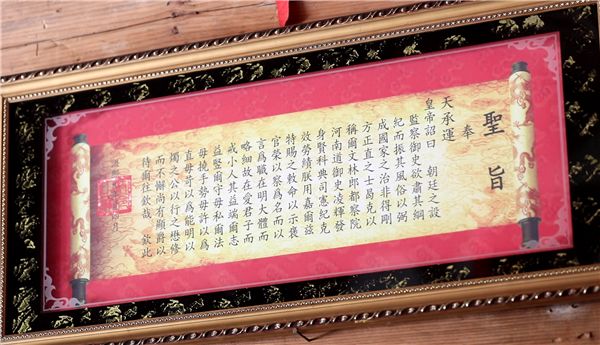 聖旨
奉
天承運
皇帝詔曰 朝廷之設
監察御史欲肅其綱
紀而振其風俗以弼
成國家之治非得剛
方正直之士曷克以
稱爾文林郎都察院
河南道御史凌輝發
身賢科典司憲紀克
效勞績朕用嘉爾茲
特賜之敕命以示褒
官榮以察爲名而以
言爲職在明大體而
略細故在愛君子而
戒小人其益端爾志
益堅爾守毋私爾法
毋撓手勢毋許以爲
直毋苛以爲能明以
燭之公以行之懋修
而不懈尚有顯爵以
待爾往欽哉 欽此